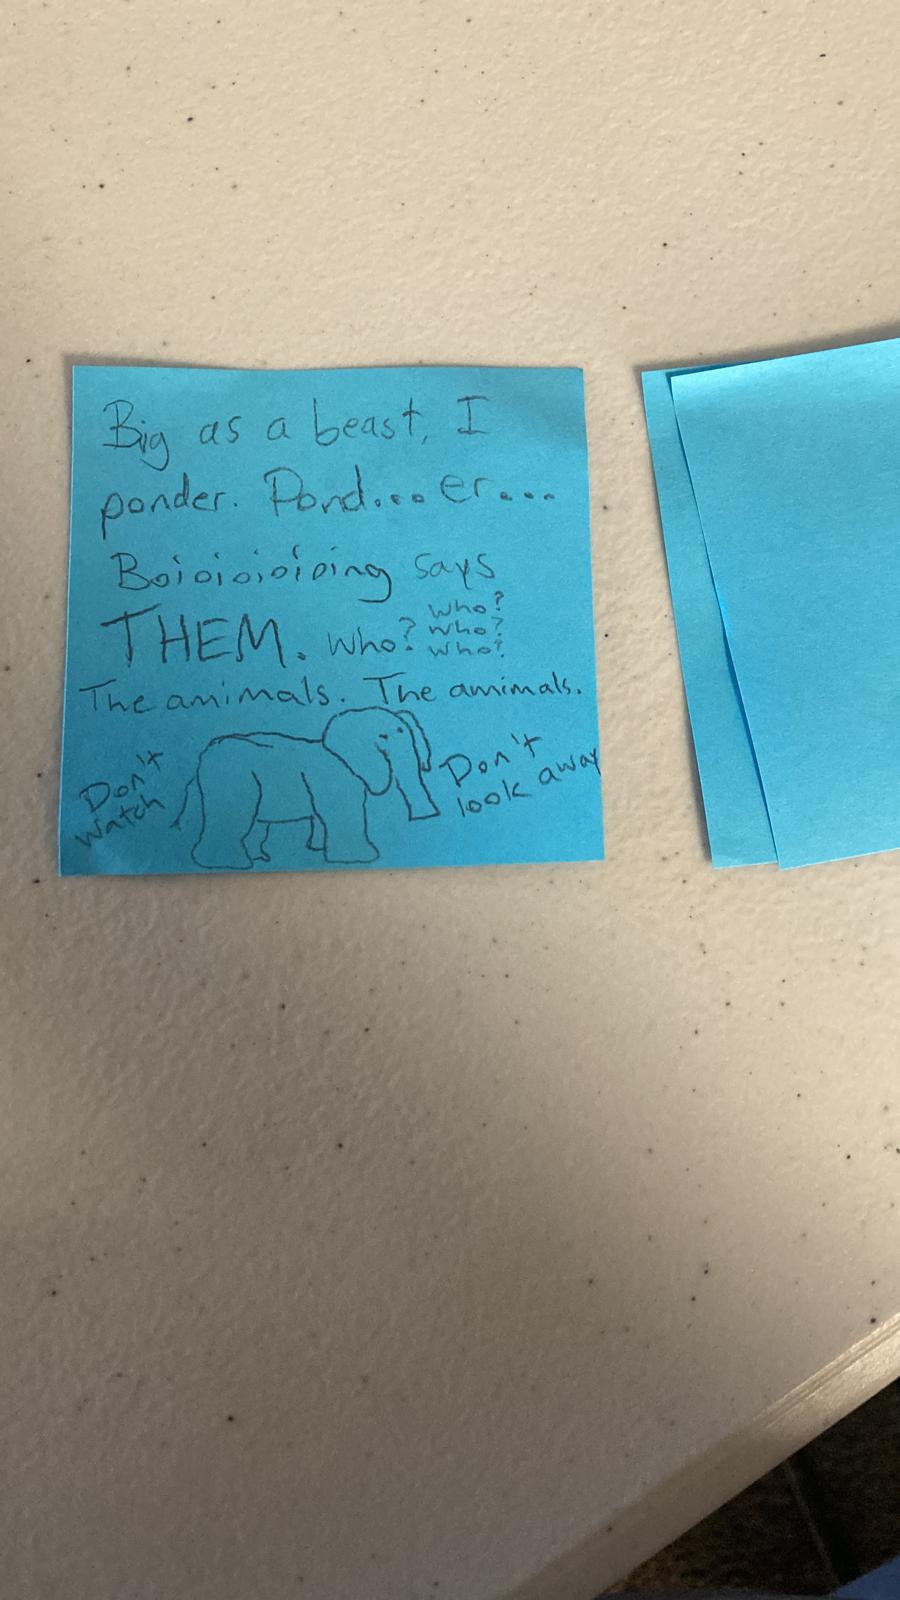 Big as a beast, I
ponder. Pond... er...
Boioioioioing says
THEM. who? who?
who?
who?
The amimals. The amimals.
Don't
watch
Don't
look away